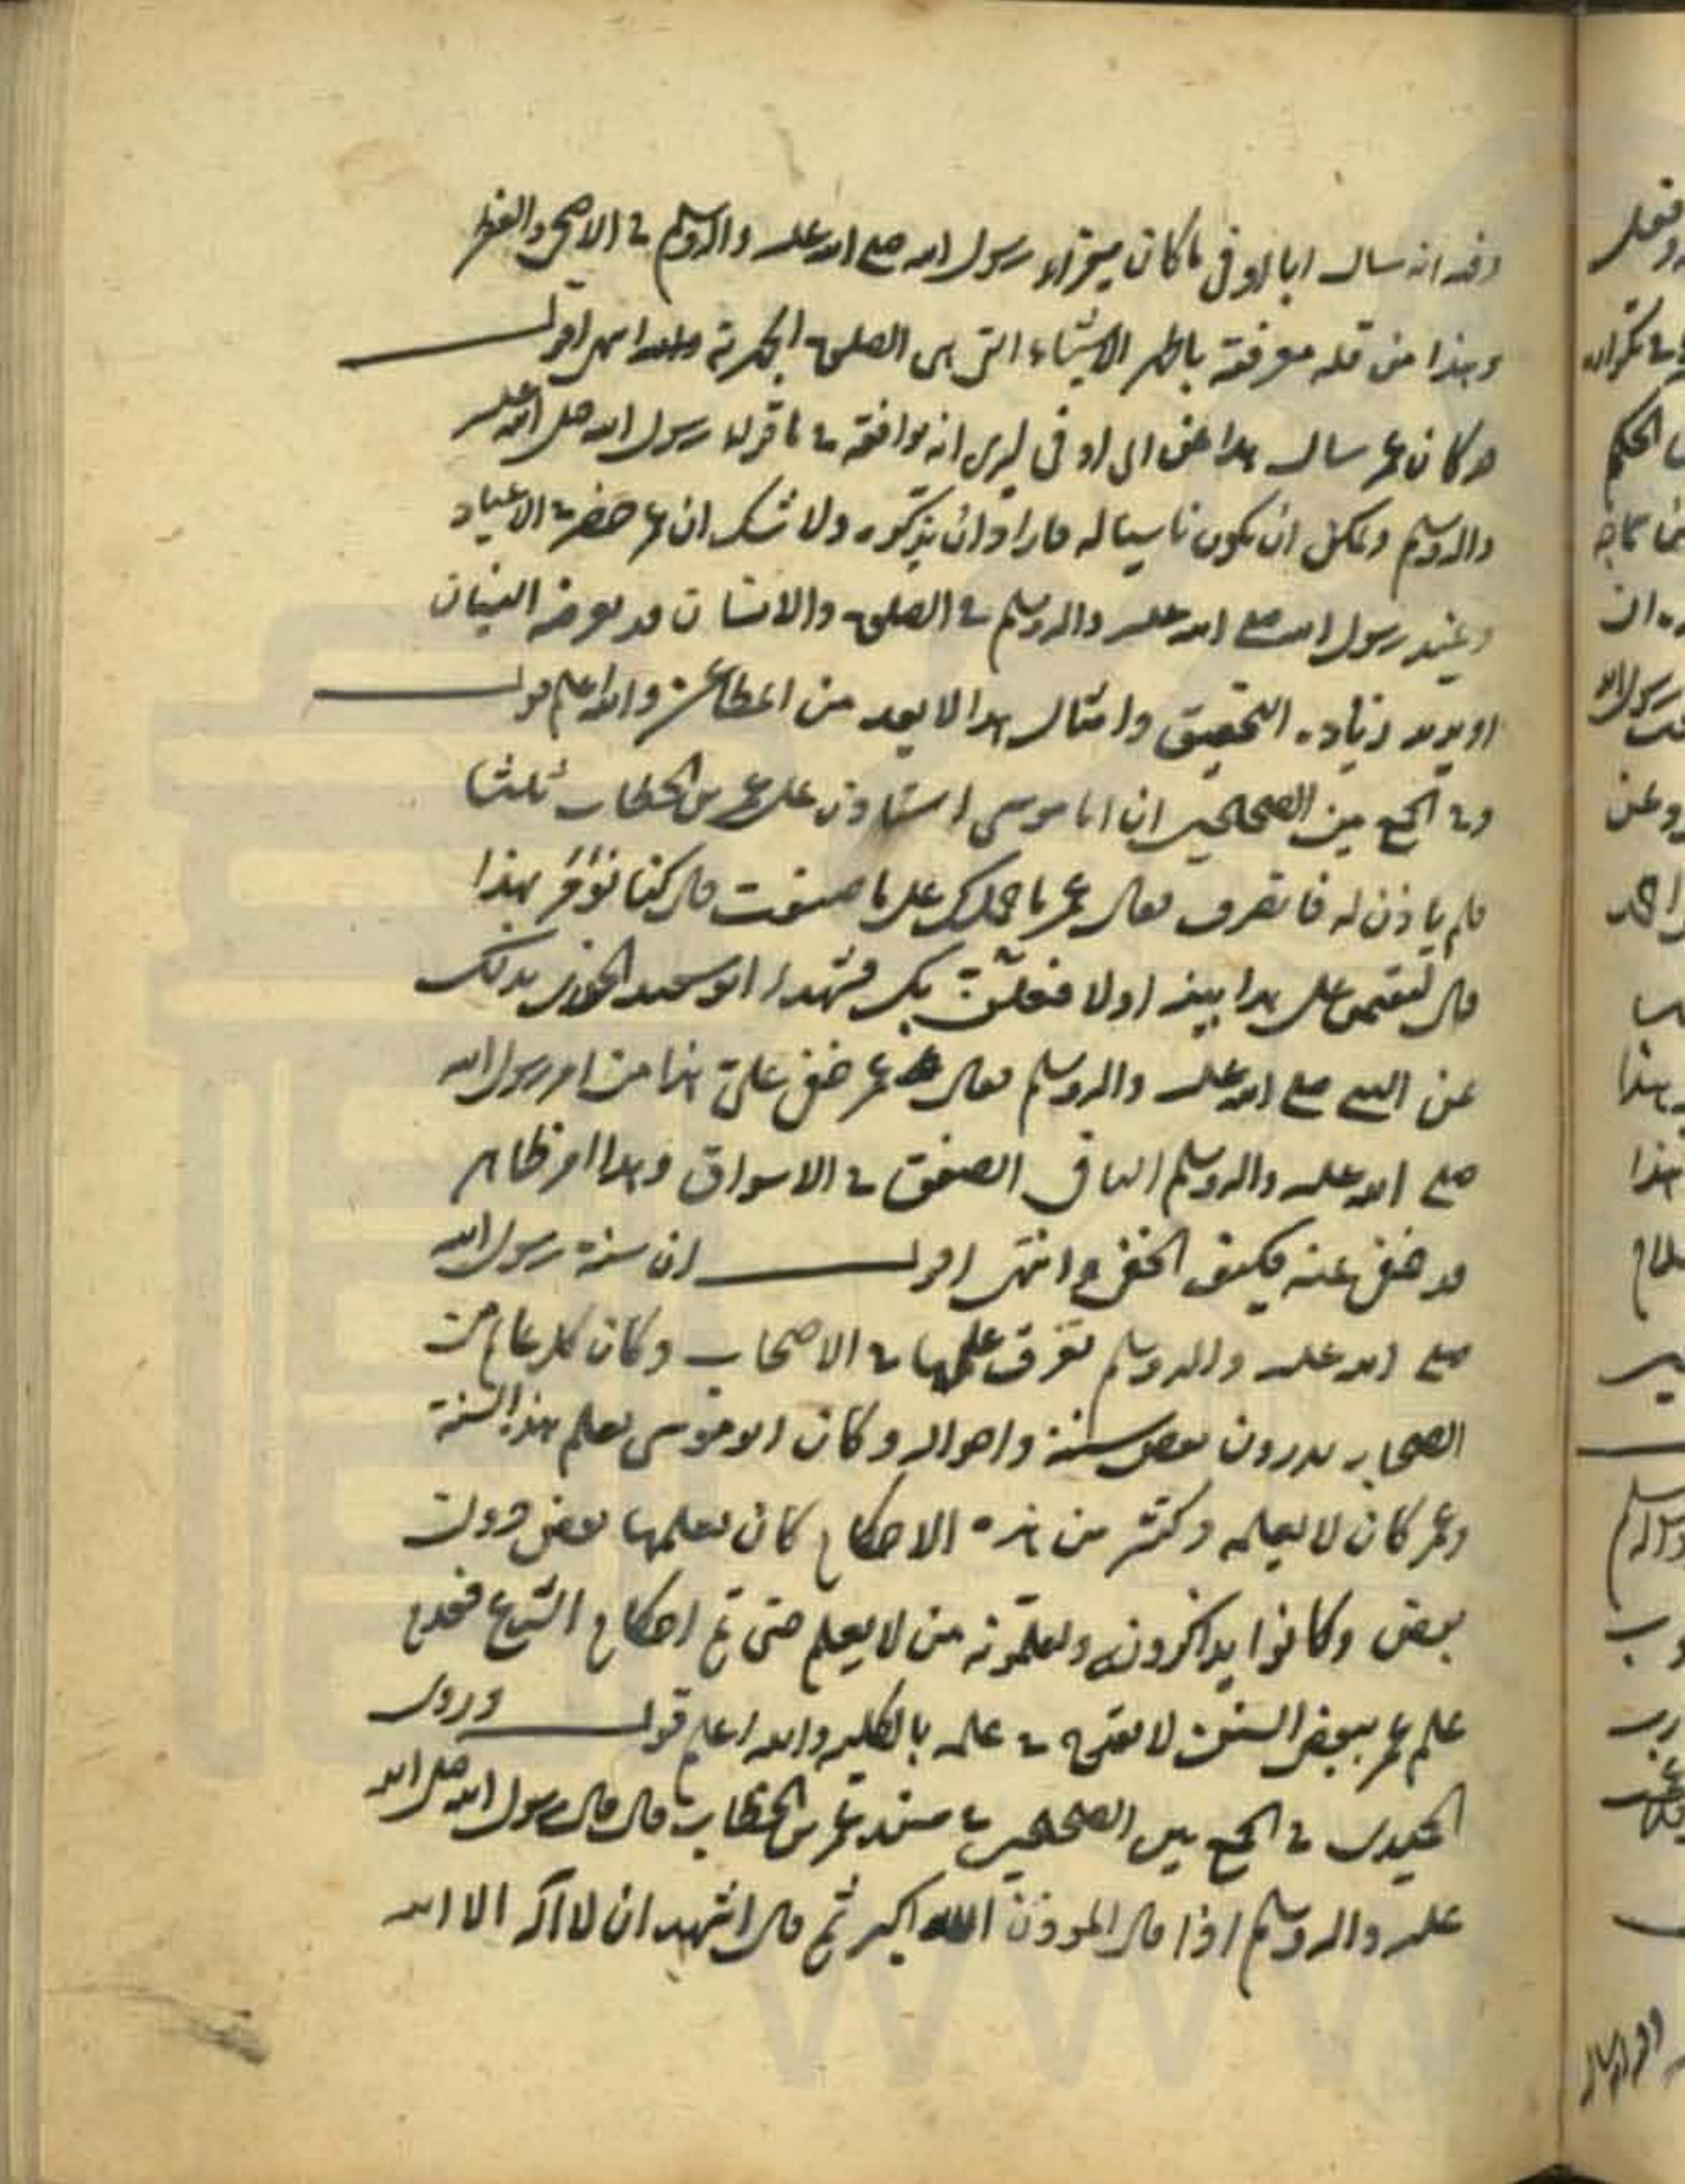 وفيه انه سال ابا اوفى ما كان يقراء رسول الله صلى الله عليه واله وسلم فى الاضحى والفطر
وهذا من قله معرفته باظهر الاشياء التى هى الصلوة الجهرية انتهى اقول
وكان عمر سال هذا عن ابى اوفى ليرى انه يوافقه فى ما قراءه رسول الله صلى الله عليه
واله وسلم ويمكن ان يكون ناسيا له فاراد ان يتذكره ولا شك ان عمر حضر فى الاعياد
وعيد رسول الله صلى الله عليه واله وسلم فى الصلوة والانسان قد يعرضه النسيان
او يريد زياده التحقيق وامثال هذا لا يعد من المطاعن والله اعلم قوله
وفى الجمع بين الصحيحين ان ابا موسى استاذن على عمر بن الخطاب ثلثا
فلم ياذن له فانصرف فقال عمر ما حملك على ما صنعت قال كنا نؤمر بهذا
قال لتقيمن على هذا بينه او لافعلن بك فشهد ابو سعيد الخدرى بذلك
عن النبى صلى الله عليه واله وسلم فقال عمر خفى على هذا من امر رسول الله
صلى الله عليه واله وسلم الهانى الصفق فى الاسواق وهذا امر ظاهر
قد خفى عنه فكيف الخفى انتهى اقول ان سنة رسول الله
صلى الله عليه واله وسلم تفرق علمها فى الاصحاب وكان كل عام من
الصحابه يدرون بعض سننه واحواله وكان ابو موسى يعلم هذا السنة
وعمر كان لا يعلمه وكثير من هذه الاحكام كان يعلمها بعض دون
بعض وكانوا يذاكرون ويعلمونه من لا يعلم حتى تم احكام الشرع فعدم
علم عمر ببعض السنن لا يقدح فى علمه بالكليه والله اعلم قوله وروى
الحميدى فى الجمع بين الصحيحين فى مسند عمر بن الخطاب قال قال رسول الله صلى الله
عليه واله وسلم اذا قال الموذن الله اكبر ثم قال اشهد ان لا اله الا الله